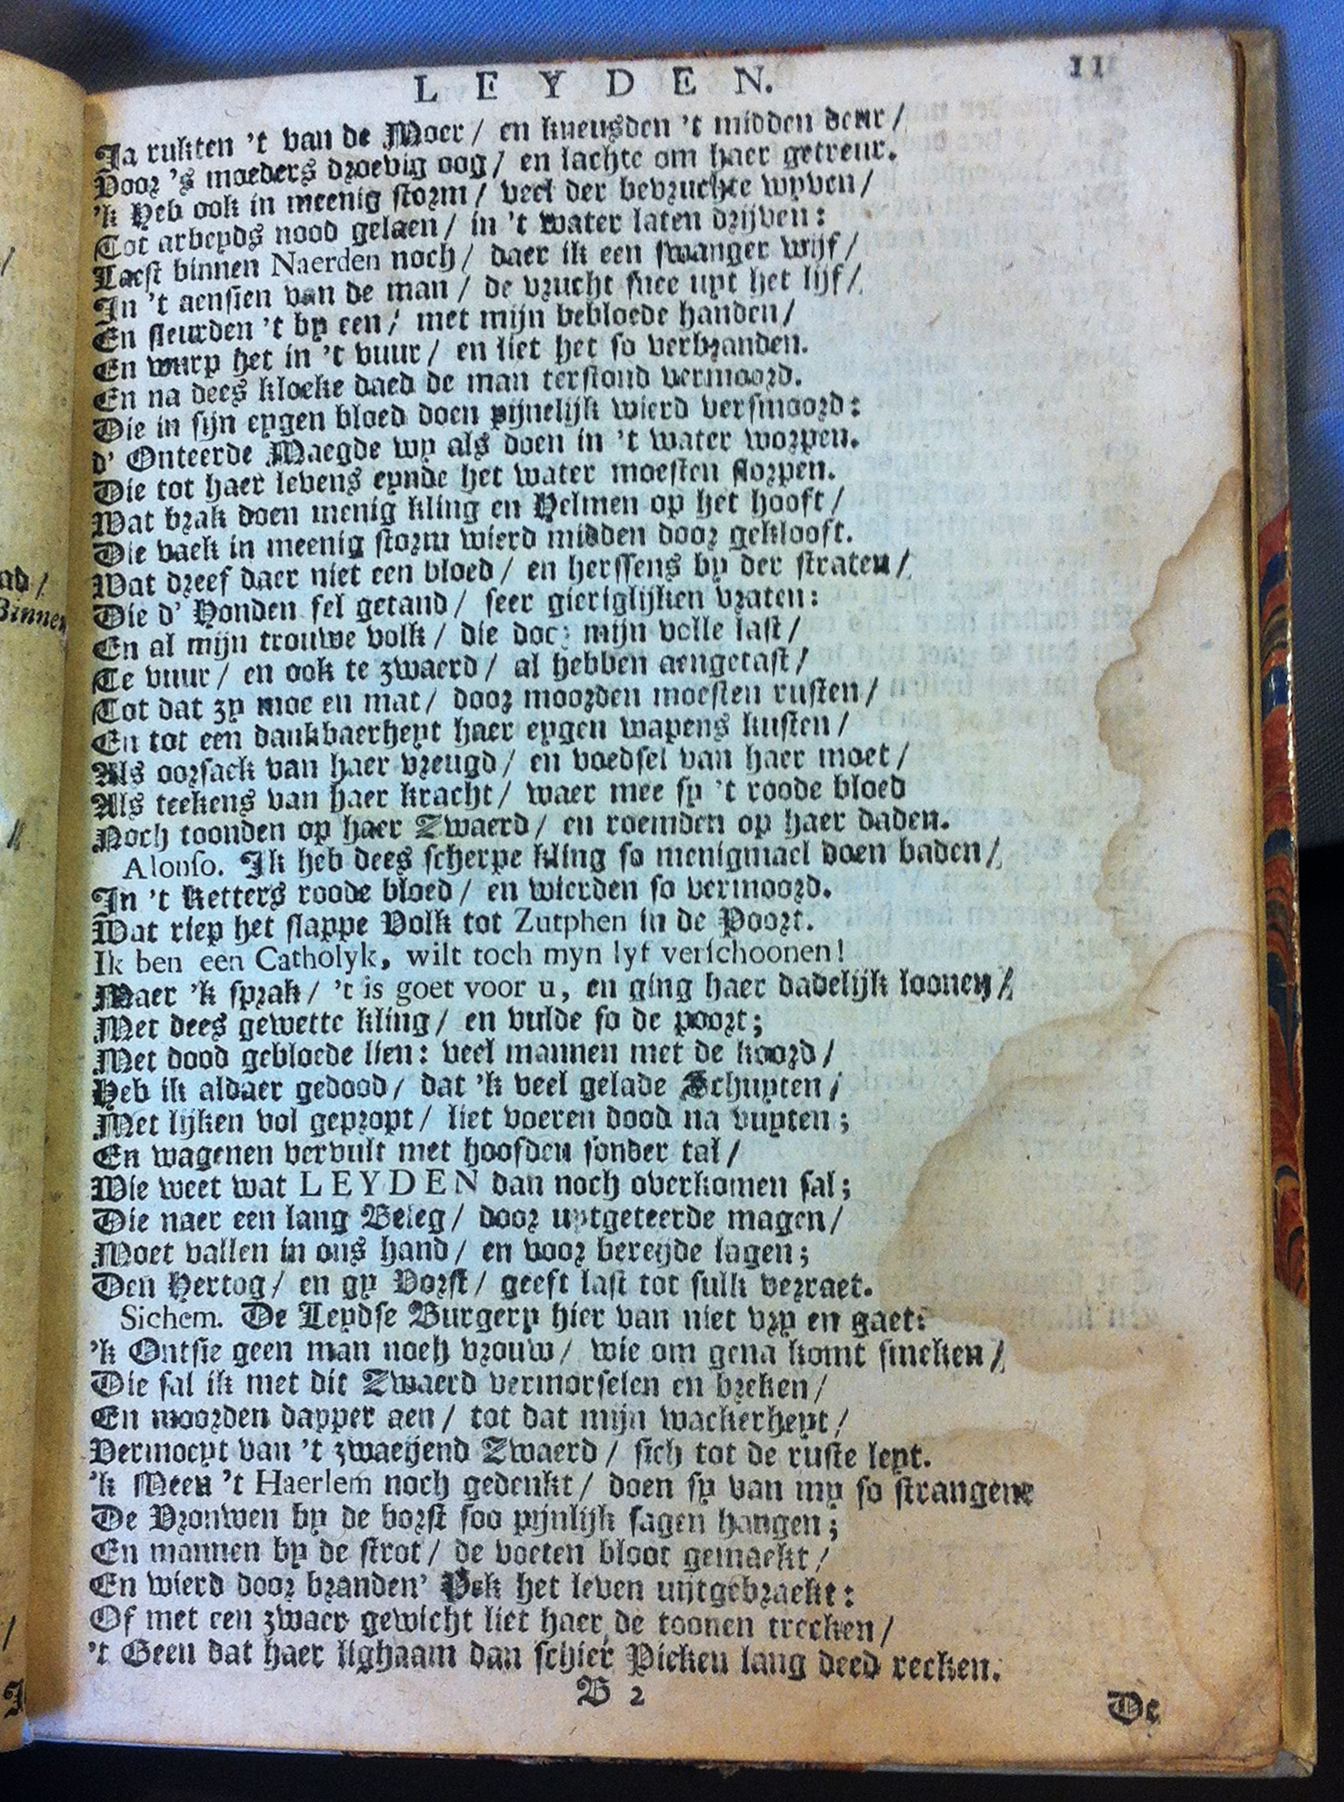 LEYDEN. 11
Ja rukten 't van de Moer / en kneusden 't midden deur /
Voor 's moeders droevig oog / en lachte om haer getreur.
'k Heb ook in meenig storm / veel der bevruchte wyven /
Tot arbeyds nood gelaen / in 't water laten drijven:
Laest binnen Naerden noch / daer ik een swanger wijf /
In 't aensien van de man / de vrucht snee uyt het lijf /
En sleurden 't by een / met mijn bebloede handen /
En wurp het in 't vuur / en liet het so verbranden.
En na dees kloeke daed de man terstond vermoord.
Die in sijn eygen bloed doen pijnelijk wierd versmoord:
d' Onteerde Maegde wy als doen in 't water worpen.
Die tot haer levens eynde het water moesten slorpen.
Wat brak doen menig kling en Helmen op het hooft /
Die vaek in meenig storm wierd midden door geklooft.
Wat dreef daer niet een bloed / en herssens by der straten /
Die d' Honden fel getand / seer gieriglijken vraten:
En al mijn trouwe volk / die door mijn volle last /
Te vuur / en ook te zwaerd / al hebben aengetast /
Tot dat zy moe en mat / door moorden moesten rusten /
En tot een dankbaerheyt haer eygen wapens kusten /
Als oorsaek van haer vreugd / en voedsel van haer moet /
Als teekens van haer kracht / waer mee sy 't roode bloed
Noch toonden op haer Zwaerd / en roemden op haer daden.
Alonso. Ik heb dees scherpe kling so menigmael doen baden /
In 't Ketters roode bloed / en wierden so vermoord.
Wat riep het slappe Volk tot Zutphen in de Poort.
Ik ben een Catholyk, wilt toch myn lyf verschoonen!
Maer 'k sprak / 't is goet voor u, en ging haer dadelijk loonen /
Met dees gewette kling / en vulde so de poort;
Met dood gebloede lien: veel mannen met de koord /
Heb ik aldaer gedood / dat 'k veel gelade Schuyten /
Met lijken vol gepropt / liet voeren dood na buyten;
En wagenen vervult met hoofden sonder tal /
Wie weet wat LEYDEN dan noch overkomen sal;
Die naer een lang Beleg / door uytgeteerde magen /
Moet vallen in ons hand / en voor bereyde lagen;
Den Hertog / en gy Vorst / geeft last tot sulk verraet.
Sichem. De Leydse Burgery hier van niet vry en gaet:
'k Ontsie geen man noch vrouw / wie om gena komt smeken /
Die sal ik met dit Zwaerd vermorselen en breken /
En moorden dapper aen / tot dat mijn wackerheyt /
Vermoeyt van 't zwaeyend Zwaerd / sich tot de ruste leyt.
'k Meen 't Haerlem noch gedenkt / doen sy van my so strangene
De Vrouwen by de borst soo pijnlijk sagen hangen;
En mannen by de strot / de voeten bloot gemaekt /
En wierd door branden' Pek het leven uytgebraekt:
Of met een zwaer gewicht liet haer de toonen trecken /
't Geen dat haer lighaam dan schier Pieken lang deed recken.
B 2
De
ad /
Binnen